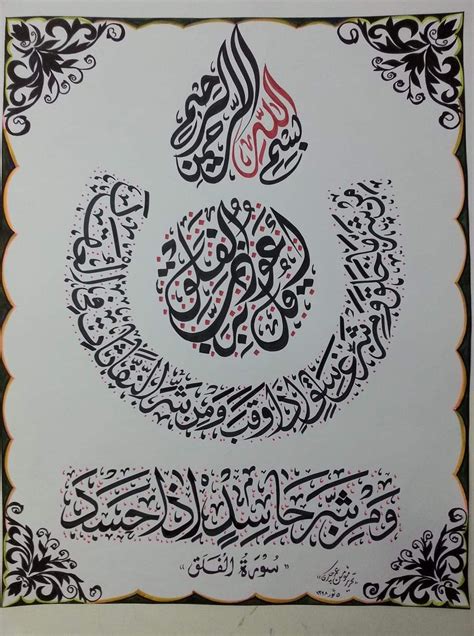 بسم الله الرحمن الرحيم
قل أعوذ برب الفلق
من شر ما خلق ومن شر غاسق إذا وقب ومن شر النفاثات في العقد
ومن شر حاسد إذا حسد
"سورة الفلق"